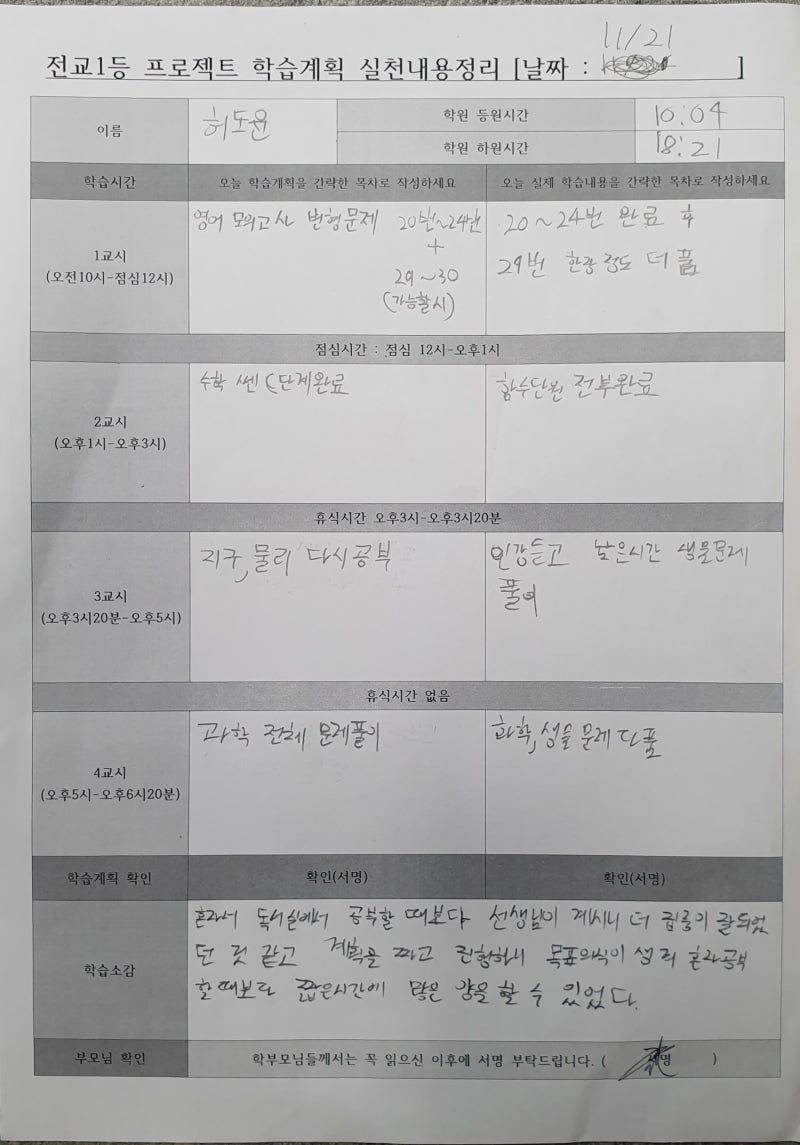 11/21
전교1등 프로젝트 학습계획 실천내용정리 [날짜 : ]
이름 허도윤 학원 등원시간 10:04
학원 하원시간 18:21
학습시간 오늘 학습계획을 간략한 목차로 작성하세요 오늘 실제 학습내용을 간략한 목차로 작성하세요
1교시
(오전10시-점심12시)
영어 모의고사 변형문제 20번~24번
+
29~30
(가능할시)
20~24번 완료 후
29번 한장 정도 더 풂
점심시간 : 점심 12시-오후1시
2교시
(오후1시-오후3시)
수학 쎈 C단계완료
함수단원 전부완료
휴식시간 오후3시-오후3시20분
3교시
(오후3시20분-오후5시)
지구, 물리 다시공부
인강듣고 남은시간 생물문제
풀이
휴식시간 없음
4교시
(오후5시-오후6시20분)
과학 전체 문제풀이
화학, 생물 문제 다 풂
학습계획 확인 확인(서명) 확인(서명)
학습소감
혼자서 독서실에서 공부할 때보다 선생님이 계시니 더 집중이 잘되었
던 것 같고 계획을 짜고 진행하니 목표의식이 생겨 혼자공부
할때보다 짧은시간에 많은 양을 할 수 있었다.
부모님 확인 학부모님들께서는 꼭 읽으신 이후에 서명 부탁드립니다. ( 서명 )